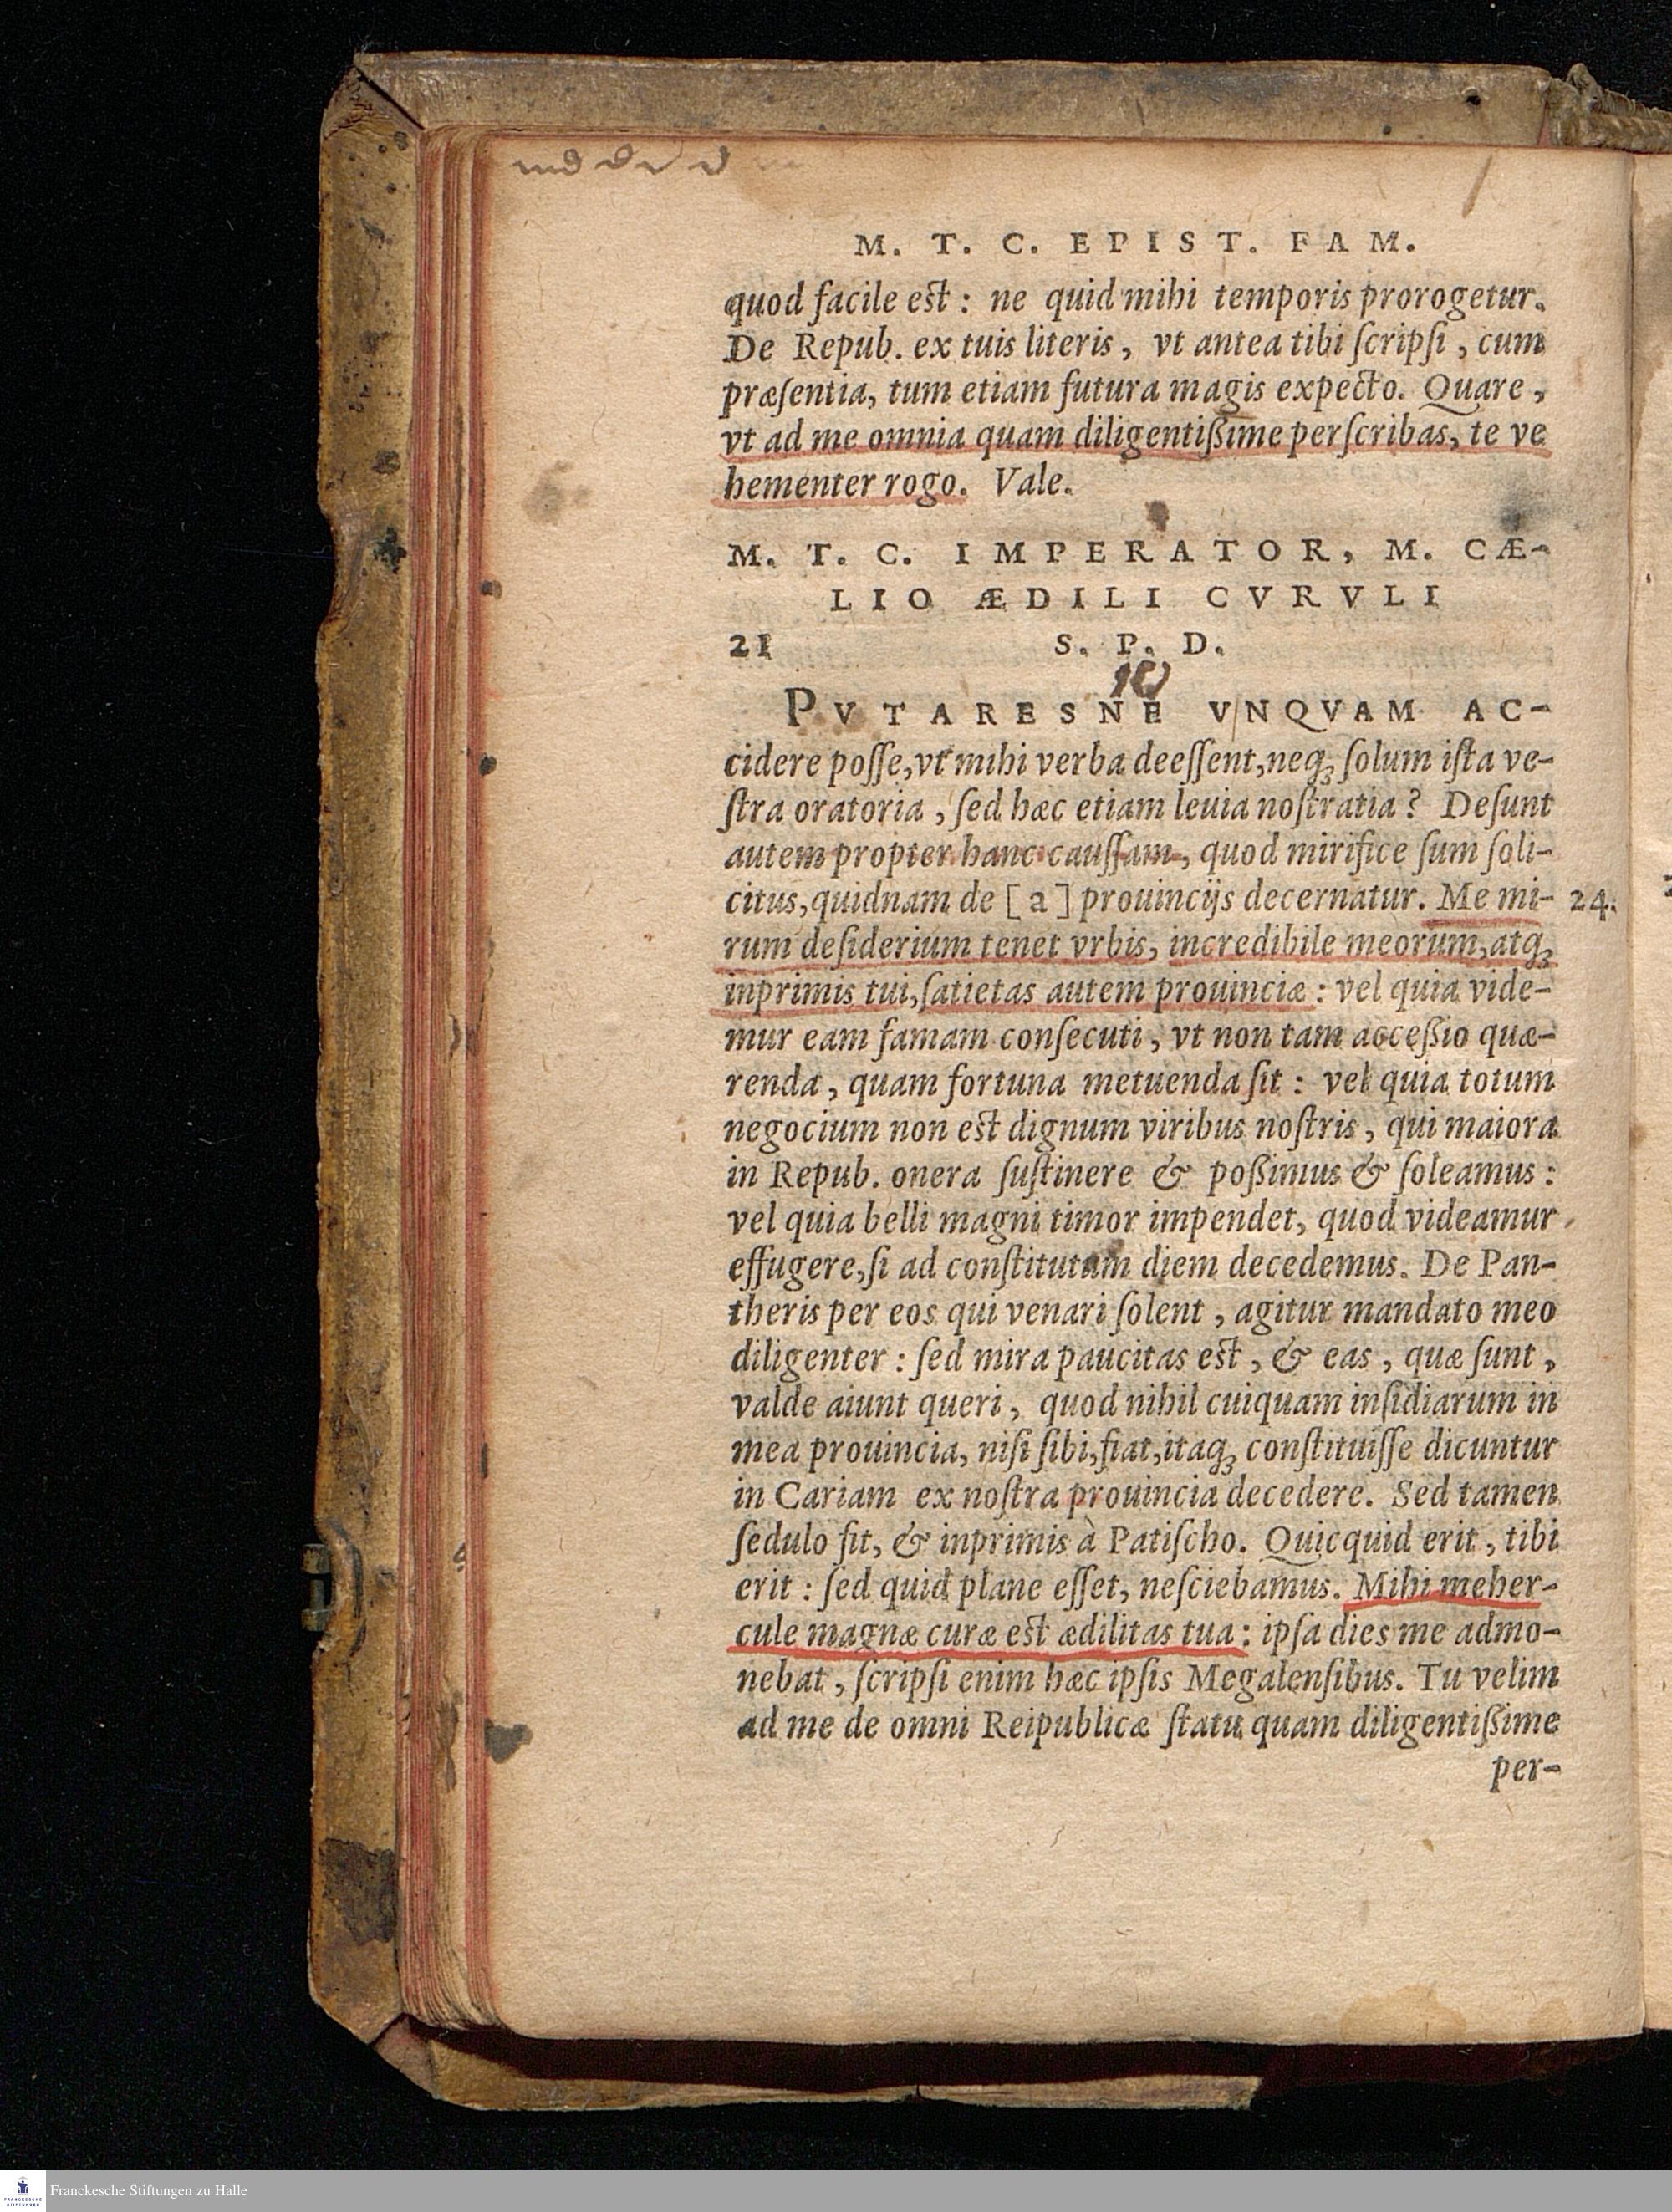 M. T. C. EPIST. FAM.
quod facile est: ne quid mihi temporis prorogetur.
De Repub. ex tuis literis, vt antea tibi ſcripſi, cum
præſentia, tum etiam futura magis expecto. Quare,
vt ad me omnia quam diligentißime perſcribas, te ve
hementer rogo. Vale.
M. T. C. IMPERATOR, M. CÆ-
LIO ÆDILI CVRVLI
21 S. P. D.
10
PVTARESNE VNQVAM AC-
cidere poſſe, vt mihi verba deeſſent, neq; ſolum iſta ve-
ſtra oratoria, ſed hæc etiam leuia noſtratia? Deſunt
autem propter hanc cauſſam, quod mirifice ſum ſoli-
citus, quidnam de [a] prouincijs decernatur. Me mi- 24.
rum deſiderium tenet vrbis, incredibile meorum, atq;
inprimis tui, ſatietas autem prouinciæ: vel quia vide-
mur eam famam conſecuti, vt non tam acceßio quæ-
renda, quam fortuna metuenda ſit: vel quia totum
negocium non est dignum viribus noſtris, qui maiora
in Repub. onera ſuſtinere & poßimus & ſoleamus:
vel quia belli magni timor impendet, quod videamur
effugere, ſi ad conſtitutam diem decedemus. De Pan-
theris per eos qui venari ſolent, agitur mandato meo
diligenter: ſed mira paucitas est, & eas, quæ ſunt,
valde aiunt queri, quod nihil cuiquam inſidiarum in
mea prouincia, niſi ſibi, fiat, itaq; conſtituiſſe dicuntur
in Cariam ex noſtra prouincia decedere. Sed tamen
ſedulo fit, & inprimis à Patiſcho. Quicquid erit, tibi
erit: ſed quid plane eſſet, neſciebamus. Mihi meher-
cule magnæ curæ est ædilitas tua: ipſa dies me admo-
nebat, ſcripſi enim hæc ipſis Megalenſibus. Tu velim
ad me de omni Reipublicæ ſtatu quam diligentißime
per-
Franckesche Stiftungen zu Halle
FRANCKESCHE
STIFTUNGEN